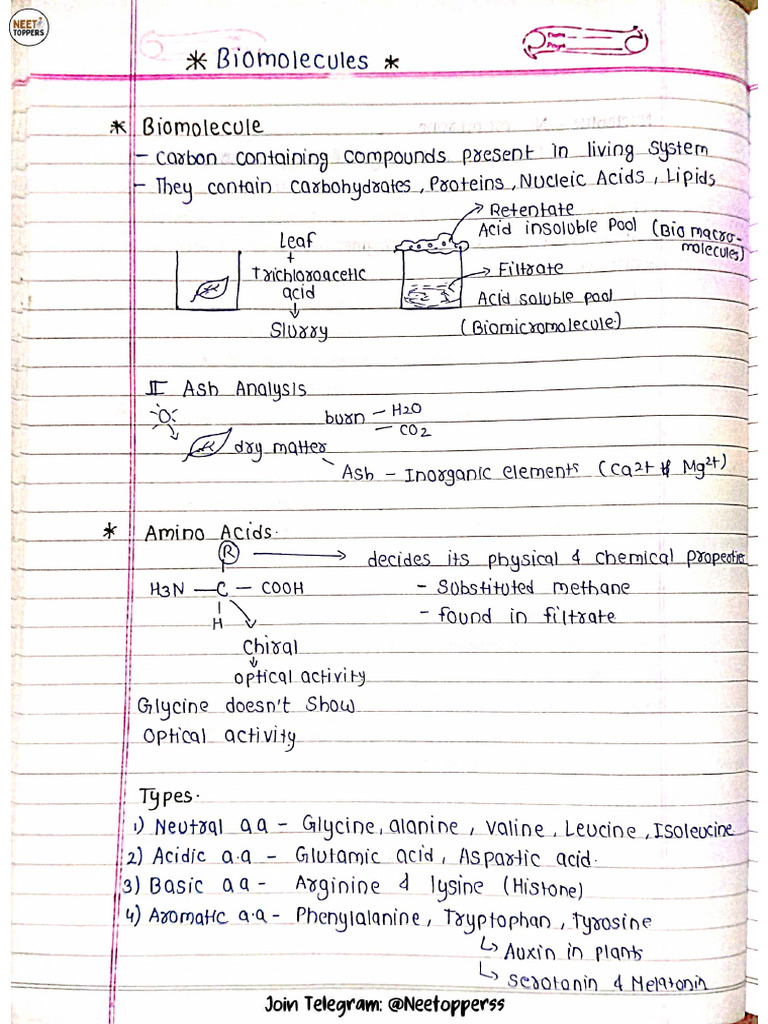 NEET TOPPERS
* Biomolecules *
* Biomolecule
- Carbon containing compounds present in living system
- They contain carbohydrates, Proteins, Nucleic Acids, Lipids
Leaf
+
Trichloroacetic
acid
↓
Slurry
→ Retentate
Acid insoluble Pool (Biomacro-
molecules)
→ Filtrate
Acid soluble pool
(Biomicromolecule)
II Ash Analysis
burn - H2O
- CO2
dry matter
Ash - Inorganic elements (Ca2+ & Mg2+)
* Amino Acids.
R → decides its physical & chemical propeties
H3N - C - COOH - Substituted methane
H - found in filtrate
Chiral
↓
optical activity
Glycine doesn't show
Optical activity
Types.
1) Neutral aa - Glycine, alanine, Valine, Leucine, Isoleucine
2) Acidic a.a - Glutamic acid, Aspartic acid.
3) Basic aa - Arginine & lysine (Histone)
4) Aromatic a.a - Phenylalanine, Tryptophan, Tyrosine
↳ Auxin in plants
↳ Serotonin & Melatonin
Join Telegram: @Neetopperss